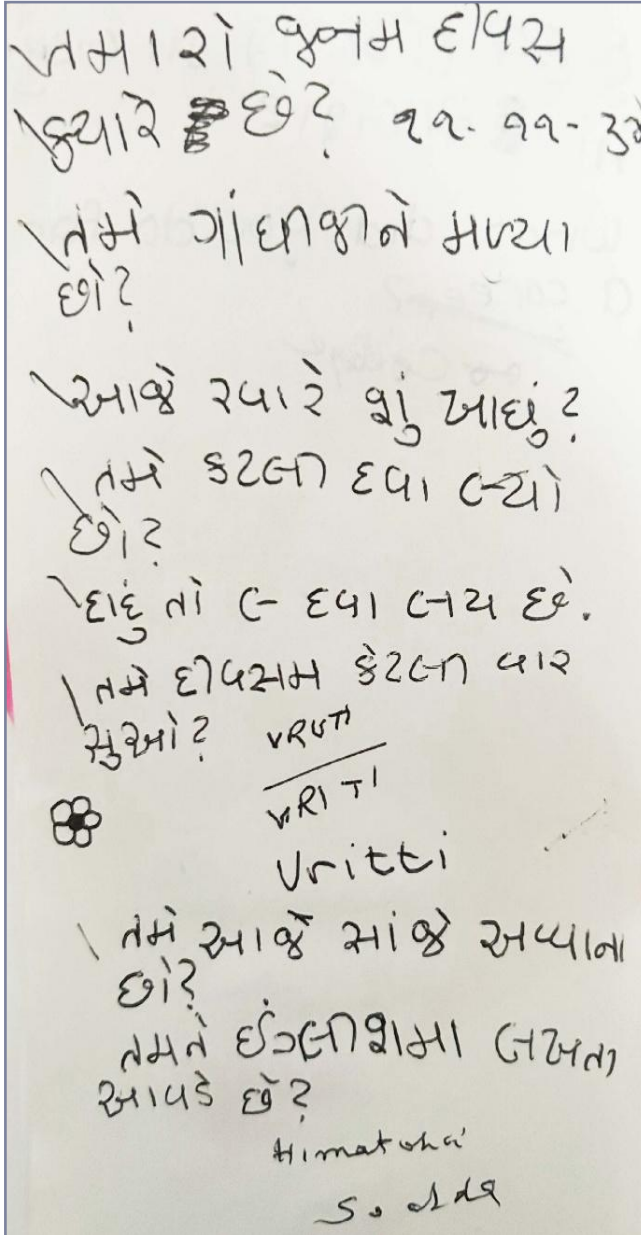 તમારો જનમ દીવસ
ક્યારે છે? ૧૧-૧૧-૩૨
તમે ગાંધીજીને મળ્યા
છો?
આજે સવારે શું ખાધું?
તમે કટલી દવા લ્યો
છો?
દાદું તો ૯ દવા લય છે.
તમે દીવસમ કેટલી વાર
સુઓ?
VRUTI
VRITI
Vritti
તમે આજે સાંજે અવ્વાના
છો?
તમને ઈંગ્લીશમા લખતા
આવડે છે?